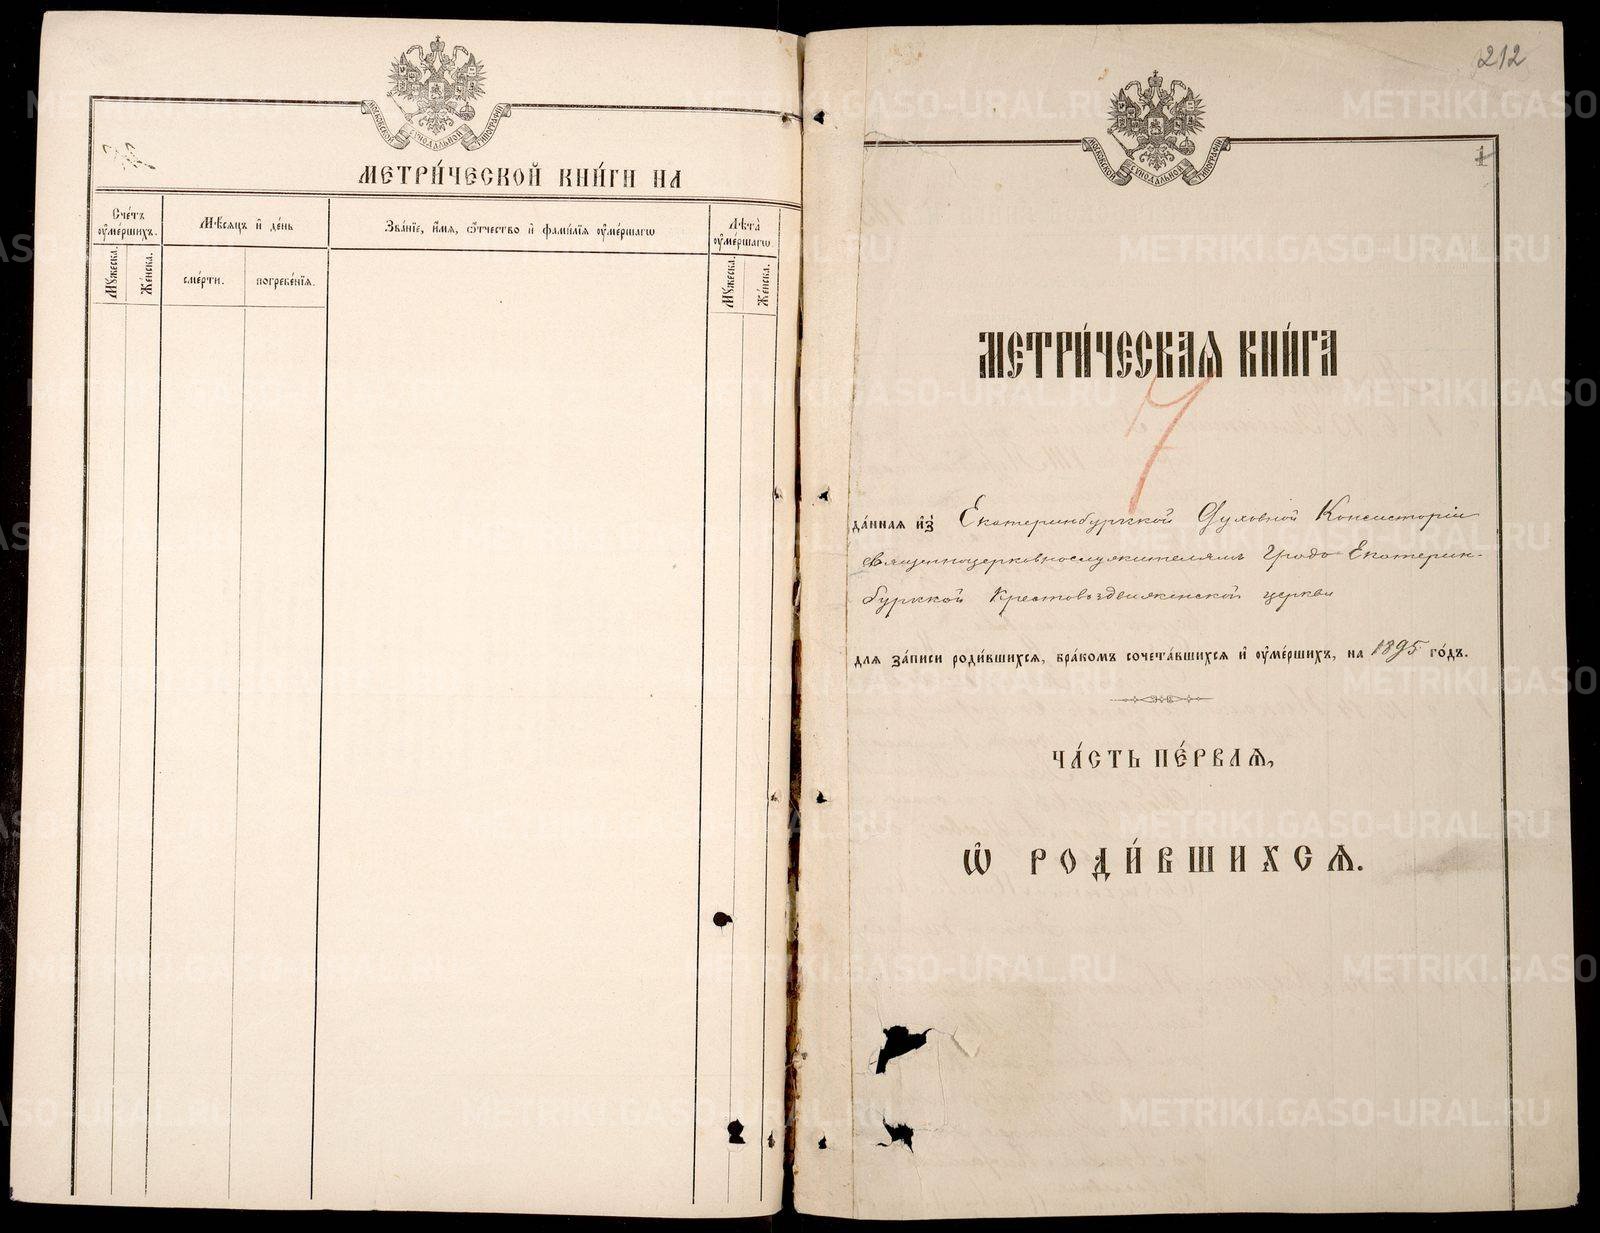 МОСКОВСКОЙ СУНОДАЛЬНОЙ ТИПОГРАФІИ
МЕТРИ́ЧЕСКОЙ КНИ́ГИ НА
Сче́тъ ᲂу҆ме́ршихъ.
Мѣ́сяцъ и҆ де́нь
Зва́нїе, и҆́мя, ѻ҆́тчество и҆ фами́лїя ᲂу҆ме́ршагѡ
Лѣ́та ᲂу҆ме́ршагѡ.
Мꙋ́жеска.
Же́нска.
сме́рти.
погребе́нїя.
Мꙋ́жеска.
Же́нска.
212
1
МОСКОВСКОЙ СУНОДАЛЬНОЙ ТИПОГРАФІИ
МЕТРИ́ЧЕСКАѦ КНИ́ГА
7
да́нная и҆з̾ Екатеринбургской Духовной Консисторіи
священноцерковнослужителямъ градо-Екатерин-
бургской Крестовоздвиженской церкви
для за́писи роди́вшихся, бра́комъ сочета́вшихся и҆ ᲂу҆ме́ршихъ, на 1895 го́дъ.
ЧА́СТЬ ПЕ́РВАѦ,
Ѡ҆ РОДИ́ВШИХСѦ.
METRIKI.GASO-URAL.RU